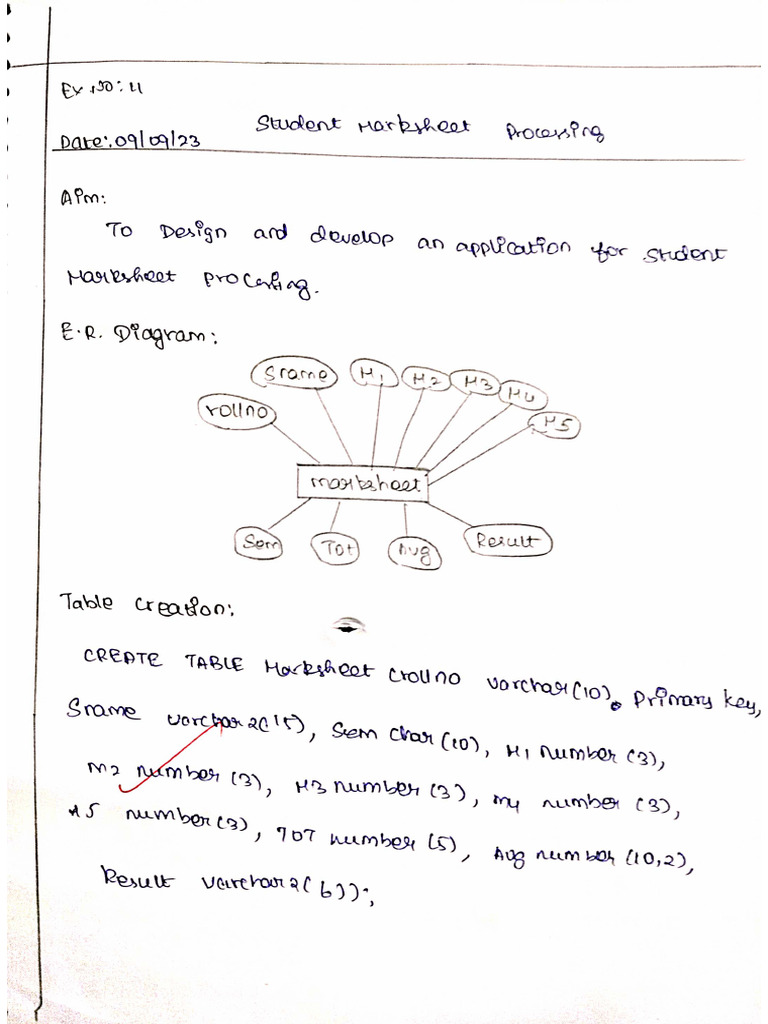 Ex.NO: 4
Student Marksheet Processing
Date: 09/09/23
Aim:
To Design and develop an application for student
Marksheet processing.
E.R. Diagram:
Sname M1 M2 M3 M4
rollno M5
marksheet
Sem Tot Avg Result
Table creation:
CREATE TABLE Marksheet (rollno varchar(10) primary key,
Sname varchar2(15), Sem char(10), M1 number (3),
M2 number (3), M3 number (3), M4 number (3),
M5 number (3), TOT number (5), Avg number (10,2),
Result varchar2(6));